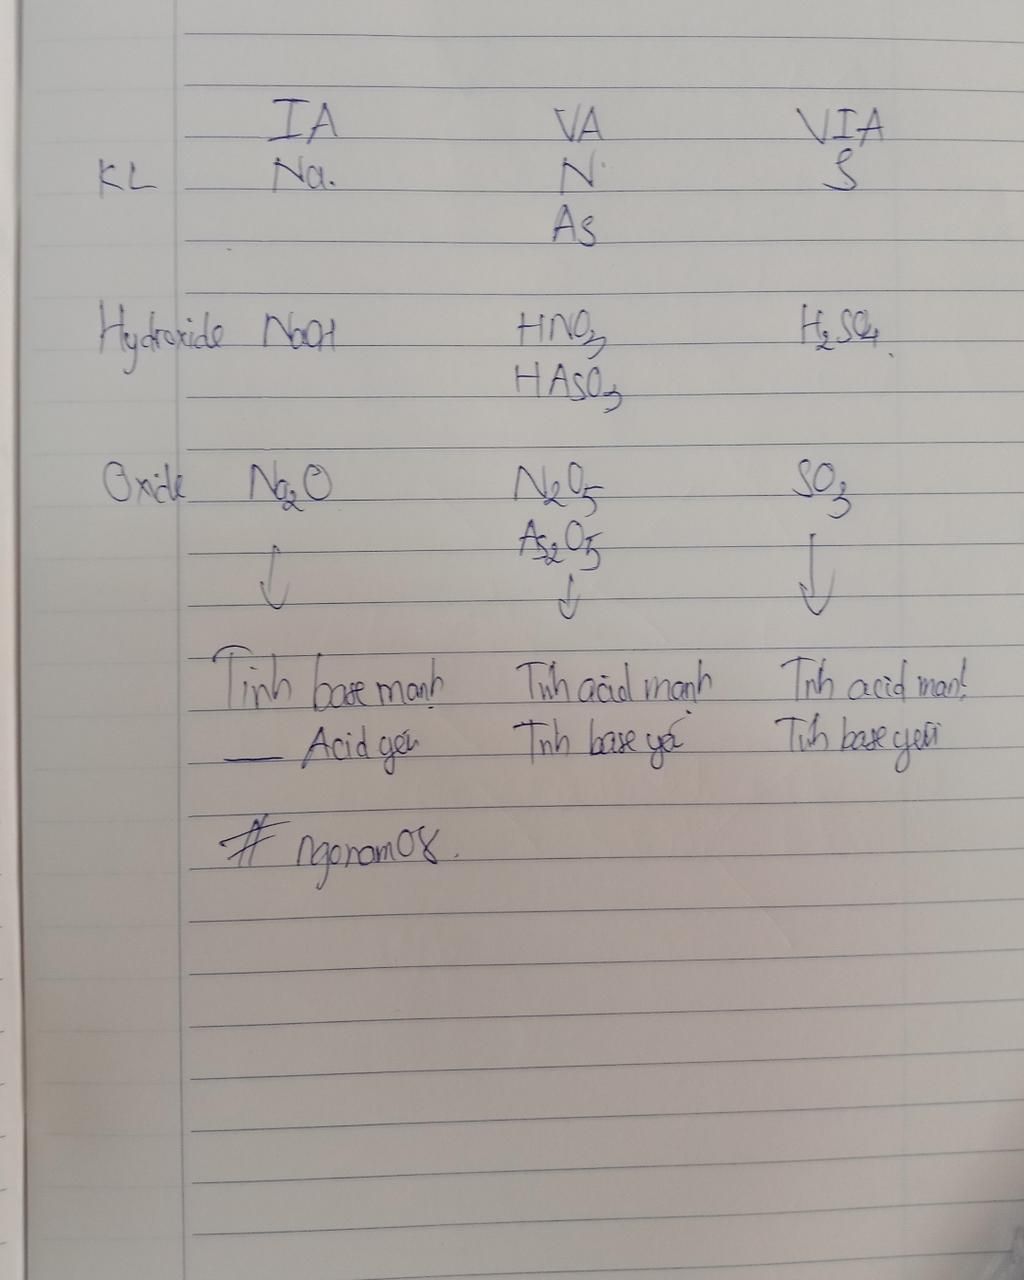 IA VA VIA
KL Na. N S
As
Hydroxide NaOH HNO3 H2SO4.
HAsO3
Oxide Na2O N2O5 SO3
As2O5
↓ ↓ ↓
Tính base mạnh Tính acid mạnh Tính acid mạnh
— Acid yếu Tính base yếu Tính base yếu
# ngonam08.